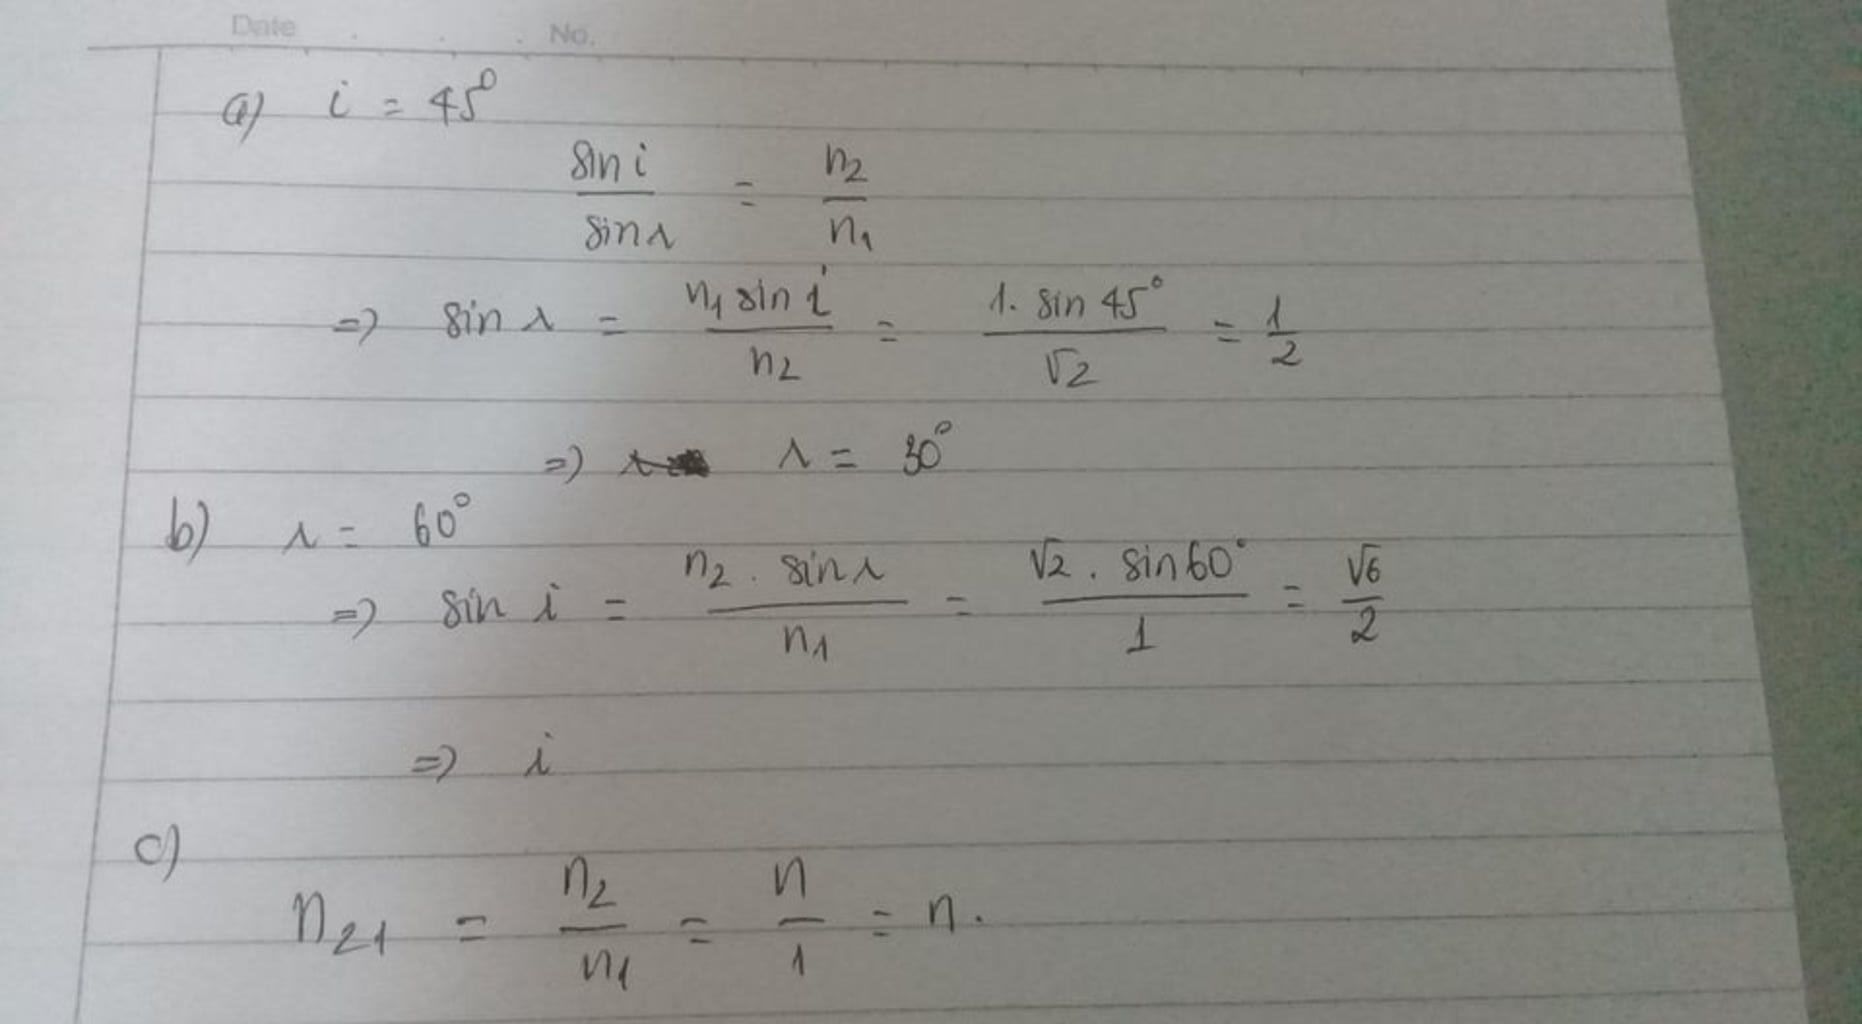 Date No.
a) i = 45°
sin i / sin r = n₂ / n₁
=> sin r = n₁ sin i / n₂ = 1. sin 45° / √2 = 1/2
=> r = 30°
b) r = 60°
=> sin i = n₂ . sin r / n₁ = √2 . sin 60° / 1 = √6 / 2
=> i
c)
n₂₁ = n₂ / n₁ = n / 1 = n.